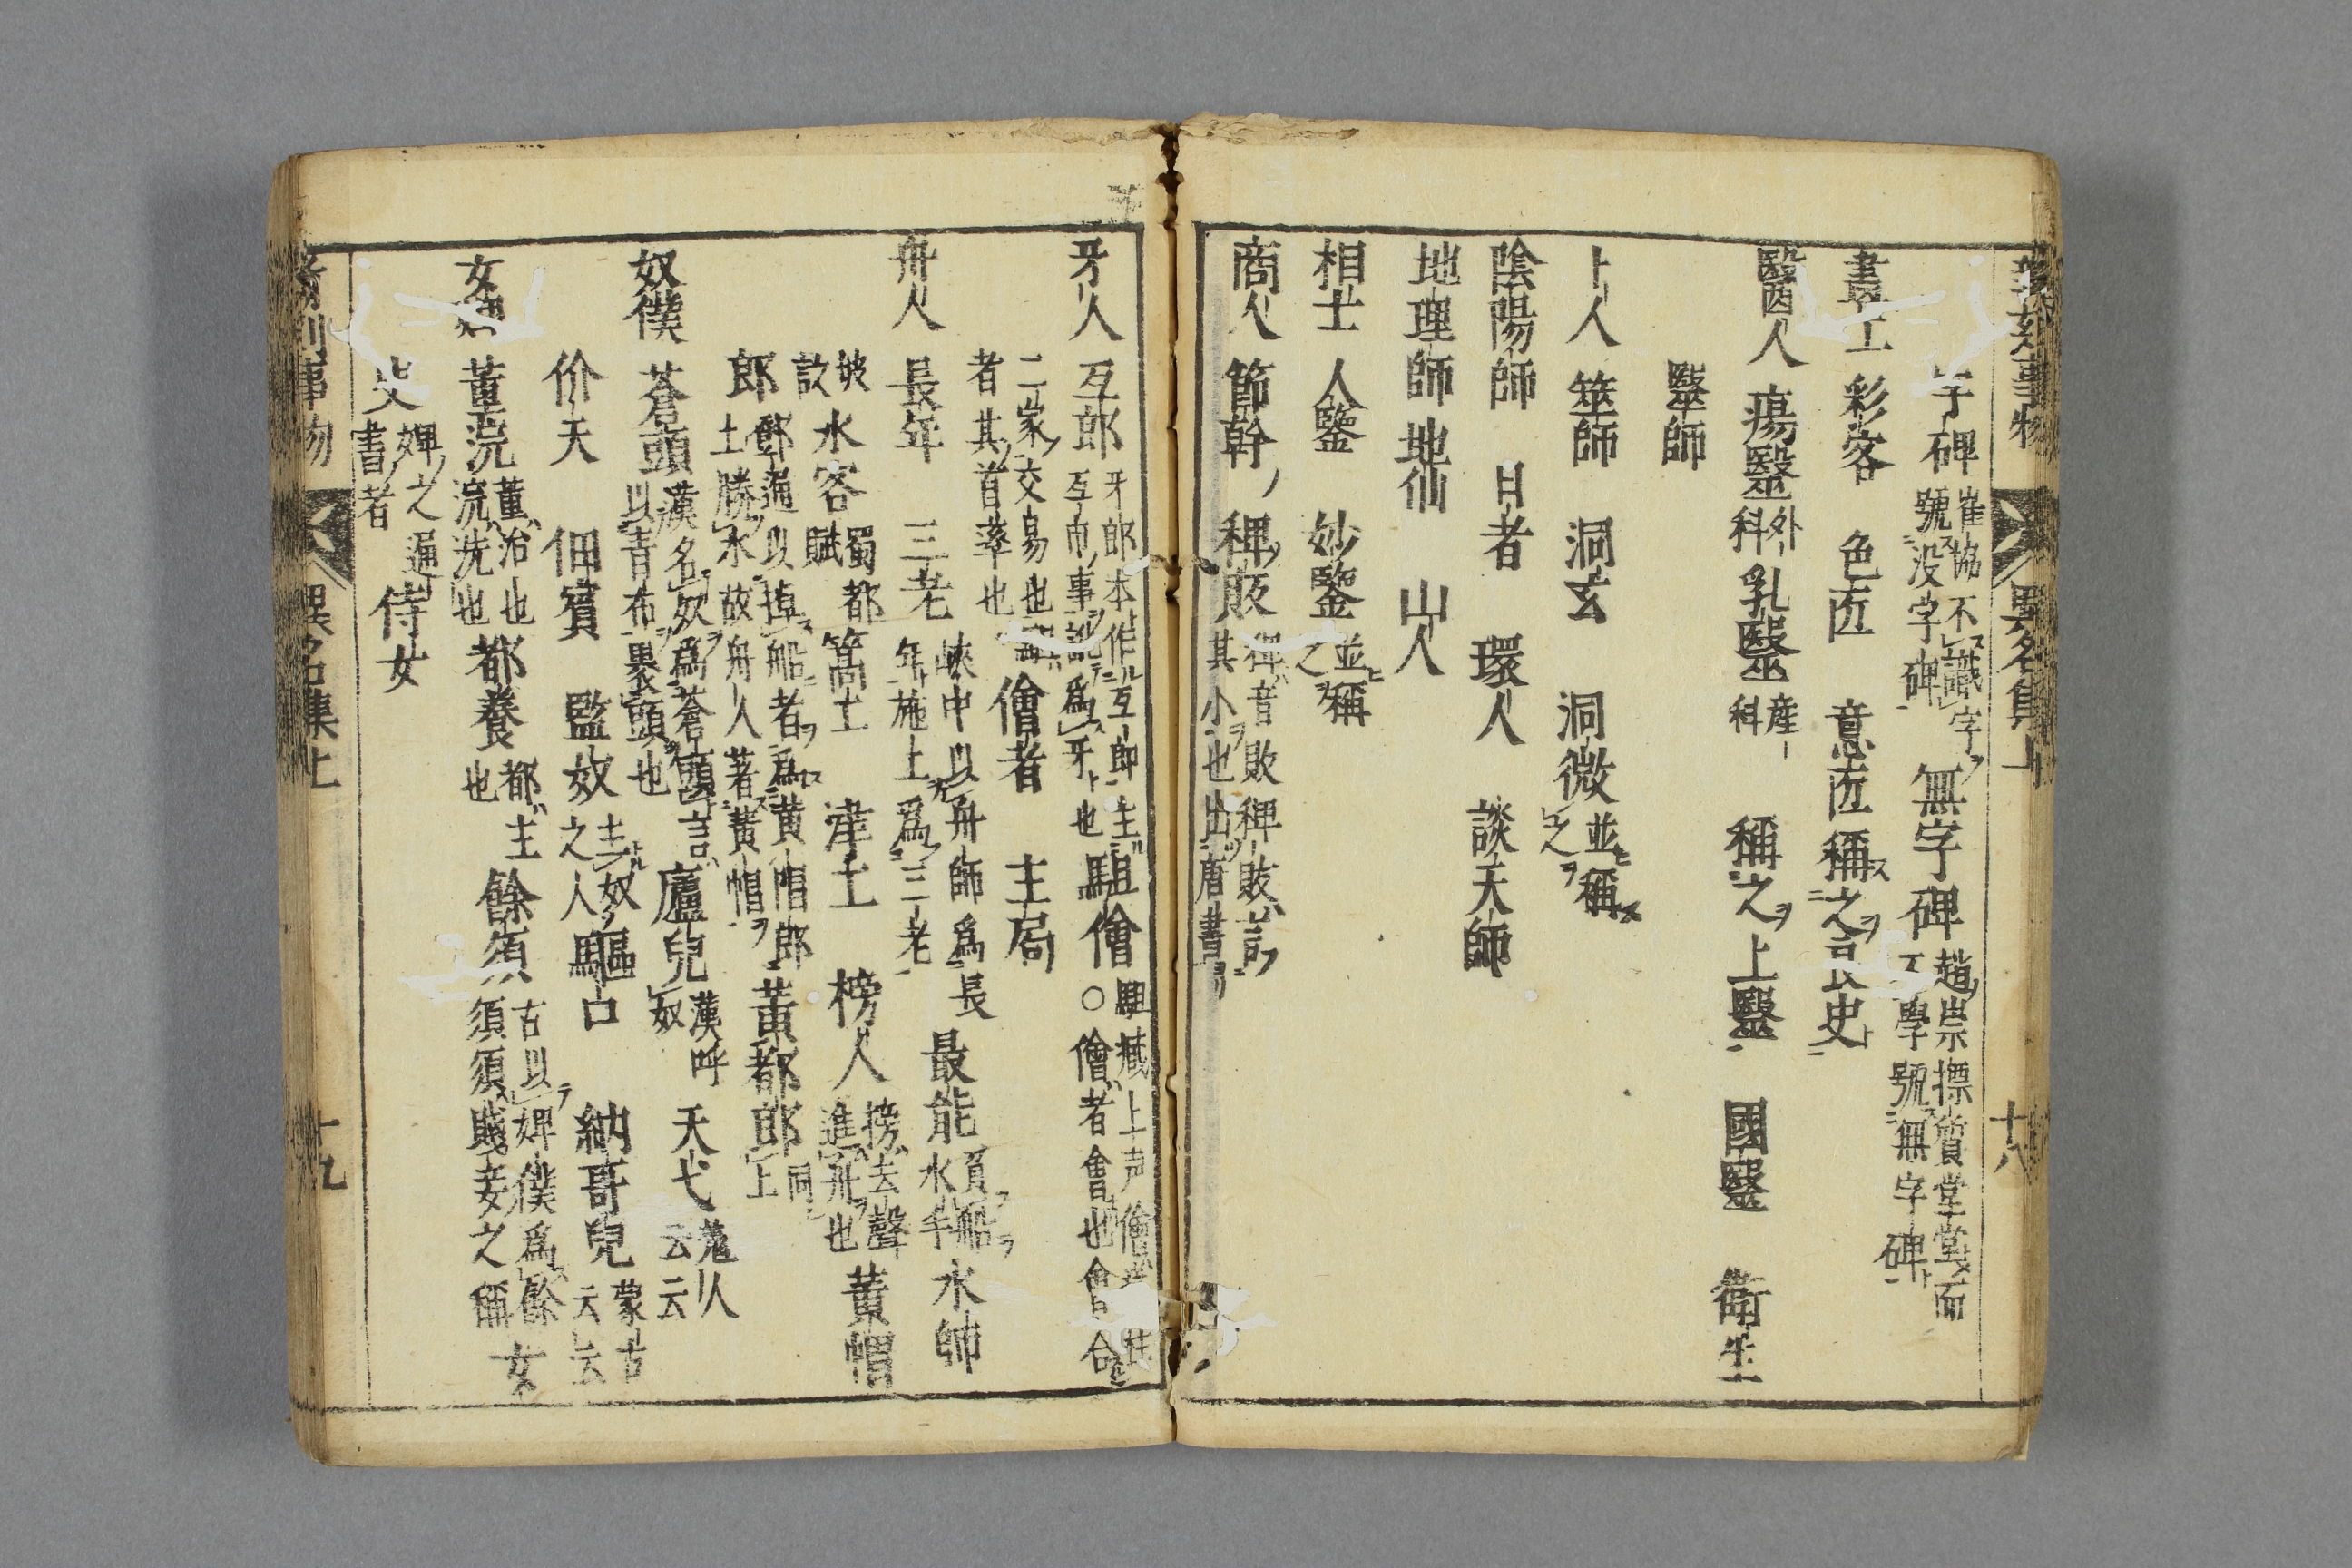 字碑 崔協不識字
號没字碑 無字碑 趙崇摽質堂堂而
不學號無字碑
畫工 彩客 色匠 意匠 稱之 長史
醫人 瘍醫 外科 乳醫 産科 稱之 上醫 國醫 衛生
醫師
卜人 筮師 洞玄 洞微 並稱之
陰陽師 日者 環人 談天師
地理師 地仙 山人
相士 人鑒 妙鑒 並稱之
商人 節幹 稗販 稗音敗稗販言
其小也出唐書
十八
牙人 互郎 牙郎本作互郎主
互市事訛爲牙也 駔儈 駔臧上声儈
○儈者會也會合
二家交易也 儈者 主局
者其首率也
舟人 長年 三老 峽中以舟師爲長
年施上爲三老 最能 負船
水手 水師
水客 蜀都
賦 篙士 津士 榜人 榜去聲
進舟也 黄帽
郎 鄧通以掉船者爲黄帽郎
土勝水故舟人著黄帽 黄都郎 同上
奴僕 蒼頭 漢名奴爲蒼頭言
以青布裹頭也 廬兒 漢呼
奴 天弋
云云
价夫 佃賓 監奴 主奴
之人 驅口 納哥兒 蒙古
云云
女婢 董浣 董治也
浣洗也 都養 都主
也 餘須 古以婢僕爲餘
須須賤妾之稱 女
史 婢之通
書者 侍女
異名集上 十九